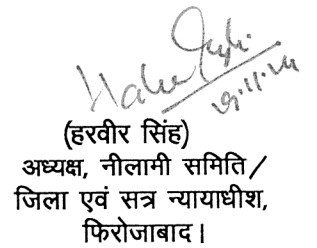 (हरवीर सिंह)
अध्यक्ष, नीलामी समिति /
जिला एवं सत्र न्यायाधीश,
फिरोजाबाद।